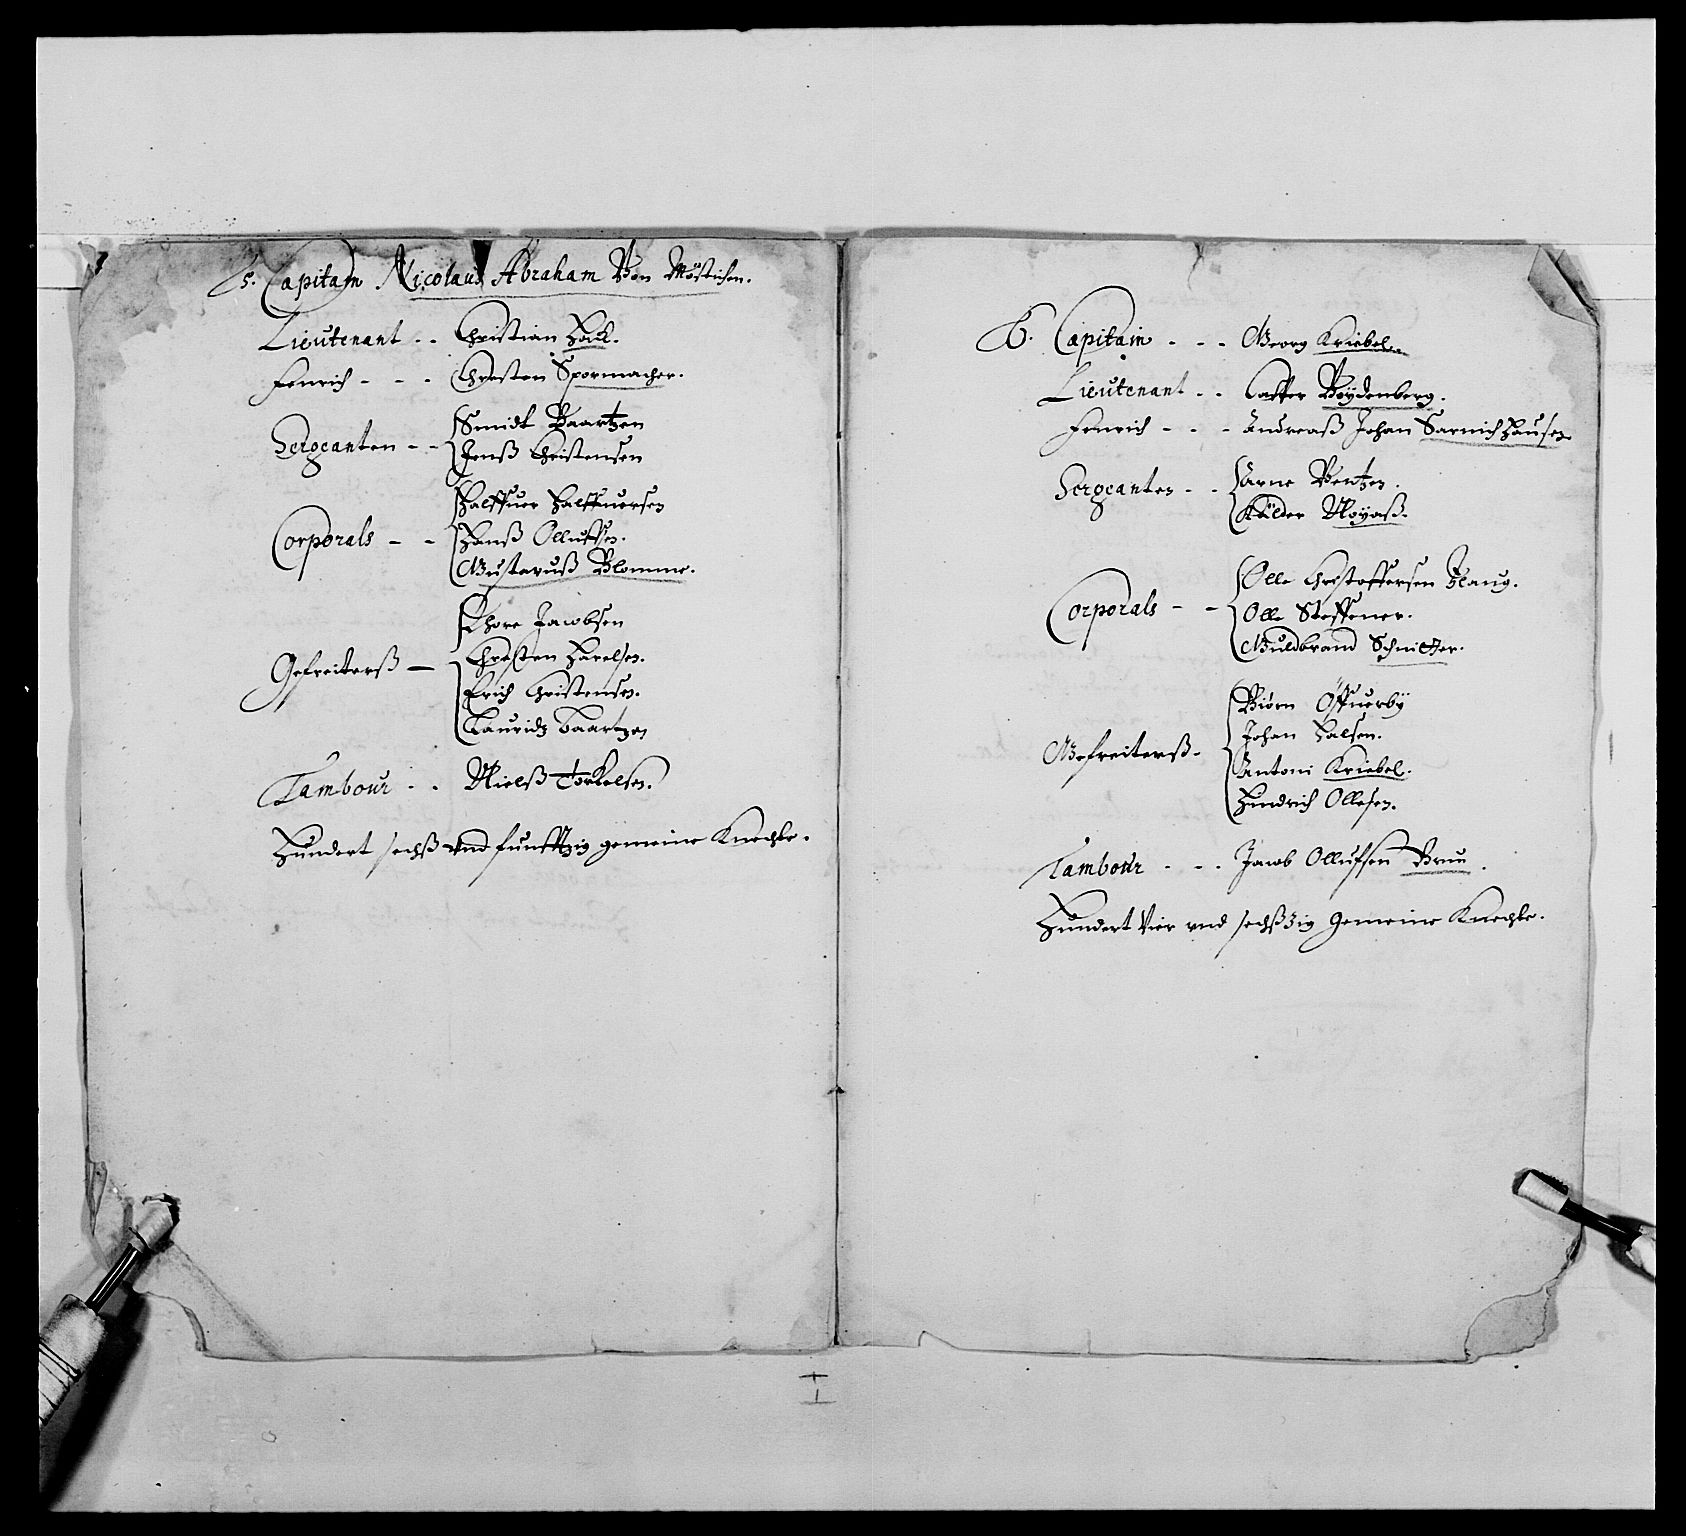 5. Capitain Nicolaus Abraham Von Möstichen.
Lieutenant - - Christian Hack.
Fenrich - - - Christen Spormacher.
Sergeanten - - Smidt Baartzen
Jenß Christensen
Corporals - - Halffuer Halffuersen
Hanß Olluffsen.
Gustavuß Blomme.
Gefreiterß - Thore Jacobsen
Christen Harelsen.
Erich Christensen.
Lauridz Baartzen
Tambour - - Nielß Torkelsen.
Hundert sechß und funfftzig gemeine Knechte.
6. Capitain - - - Georg Kriebel.
Lieutenant - - Casper Boydenberg.
Fenrich - - - Andreaß Johan Sarnichhausen
Sergeanten - - Arne Bentzen.
Kålder Noyaß.
Corporals - - Olle Christoffersen Haug.
Olle Steffener.
Guldbrand Schnitter.
Gefreiterß - Biörn Öffuerby
Johan Halsen.
Antoni Kriebel.
Hindrich Ollesen.
Tambour - - - Jacob Ollufsen Bruu.
Hundert Vier und sechßzig gemeine Knechte.